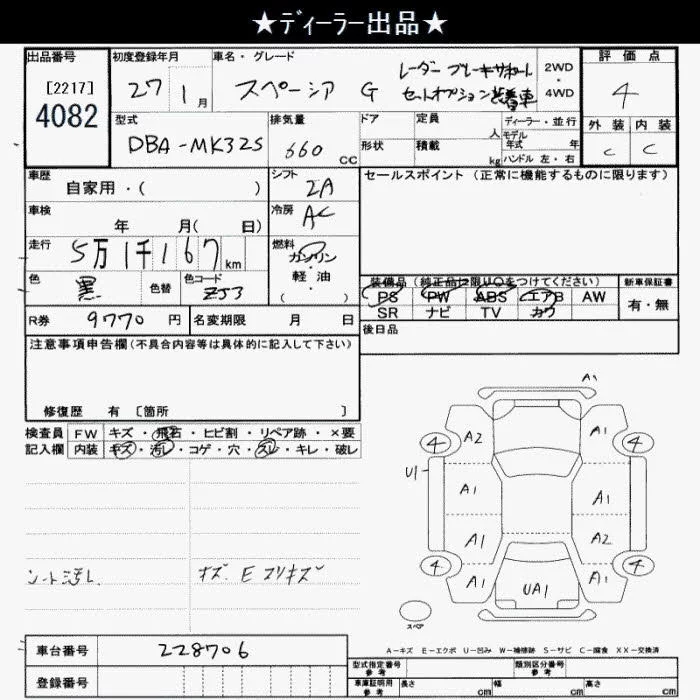 ★ディーラー出品★
出品番号 初度登録年月 車名・グレード 評価点
[2217] 27 1月 スペーシア G レーダーブレーキサポート 2WD
4082 セットオプション装着車 ・4WD 4
型式 排気量 ドア 定員 人 ディーラー・並行 外装 内装
DBA-MK32S 660 CC 形状 積載 kg モデル年式 年 C C
ハンドル 左・右
車歴 シフト セールスポイント(正常に機能するものに限ります)
自家用・( ) IA
車検 冷房
年 月( 日) AC
走行 燃料
5万1千167 km ガソリン
色 色替 色コード 軽・油 装備品(純正品に限り○をつけてください) 新車保証書
黒 ZJ3 ( ) PS PW ABS エアB AW 有・無
SR ナビ TV カワ
R券 9770 円 名変期限 月 日
後日品
注意事項申告欄(不具合内容等は具体的に記入して下さい)
修復歴 有 〔箇所 〕
検査員 FW キズ・飛石・ヒビ割・リペア跡・×要
記入欄 内装 キズ・汚レ・コゲ・穴・スレ・キレ・破レ
A1
4 A2 A1 4
U1
A1 A1
A1 A2
4 A1 UA1 A1 4
シート汚レ キズ E スリキズ
スペア
A-キズ E-エクボ U-凹み W-補修跡 S-サビ C-腐食 XX-交換済
車台番号 228706
型式指定番号 参考 類別区分番号 参考
登録番号 車庫証明用 参考 長さ cm 幅 cm 高さ cm